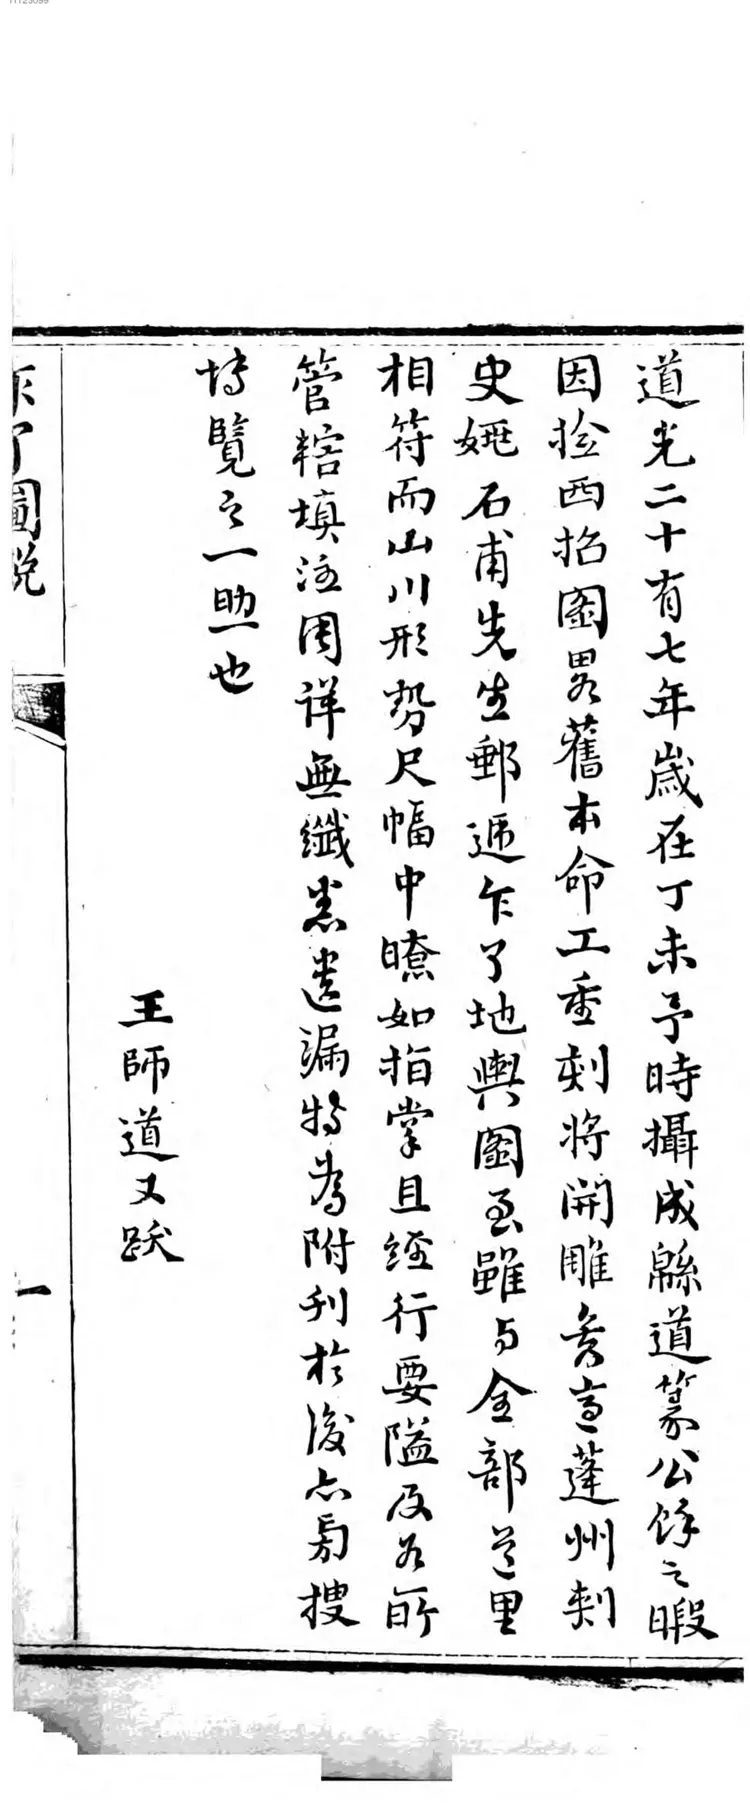 道光二十有七年歲在丁未予時攝成緜道篆公餘之暇
因撿西招圖畧舊本命工重刻將開雕矣適蓬州刺
史姚石甫先生郵遞乍了地輿圖至雖与全部道里
相符而山川形勢尺幅中瞭如指掌且經行要隘及各所
管轄填注周詳無纖悉遺漏特為附刋於後亦旁搜
博覽之一助也
王師道又跋
乍了圖說
一